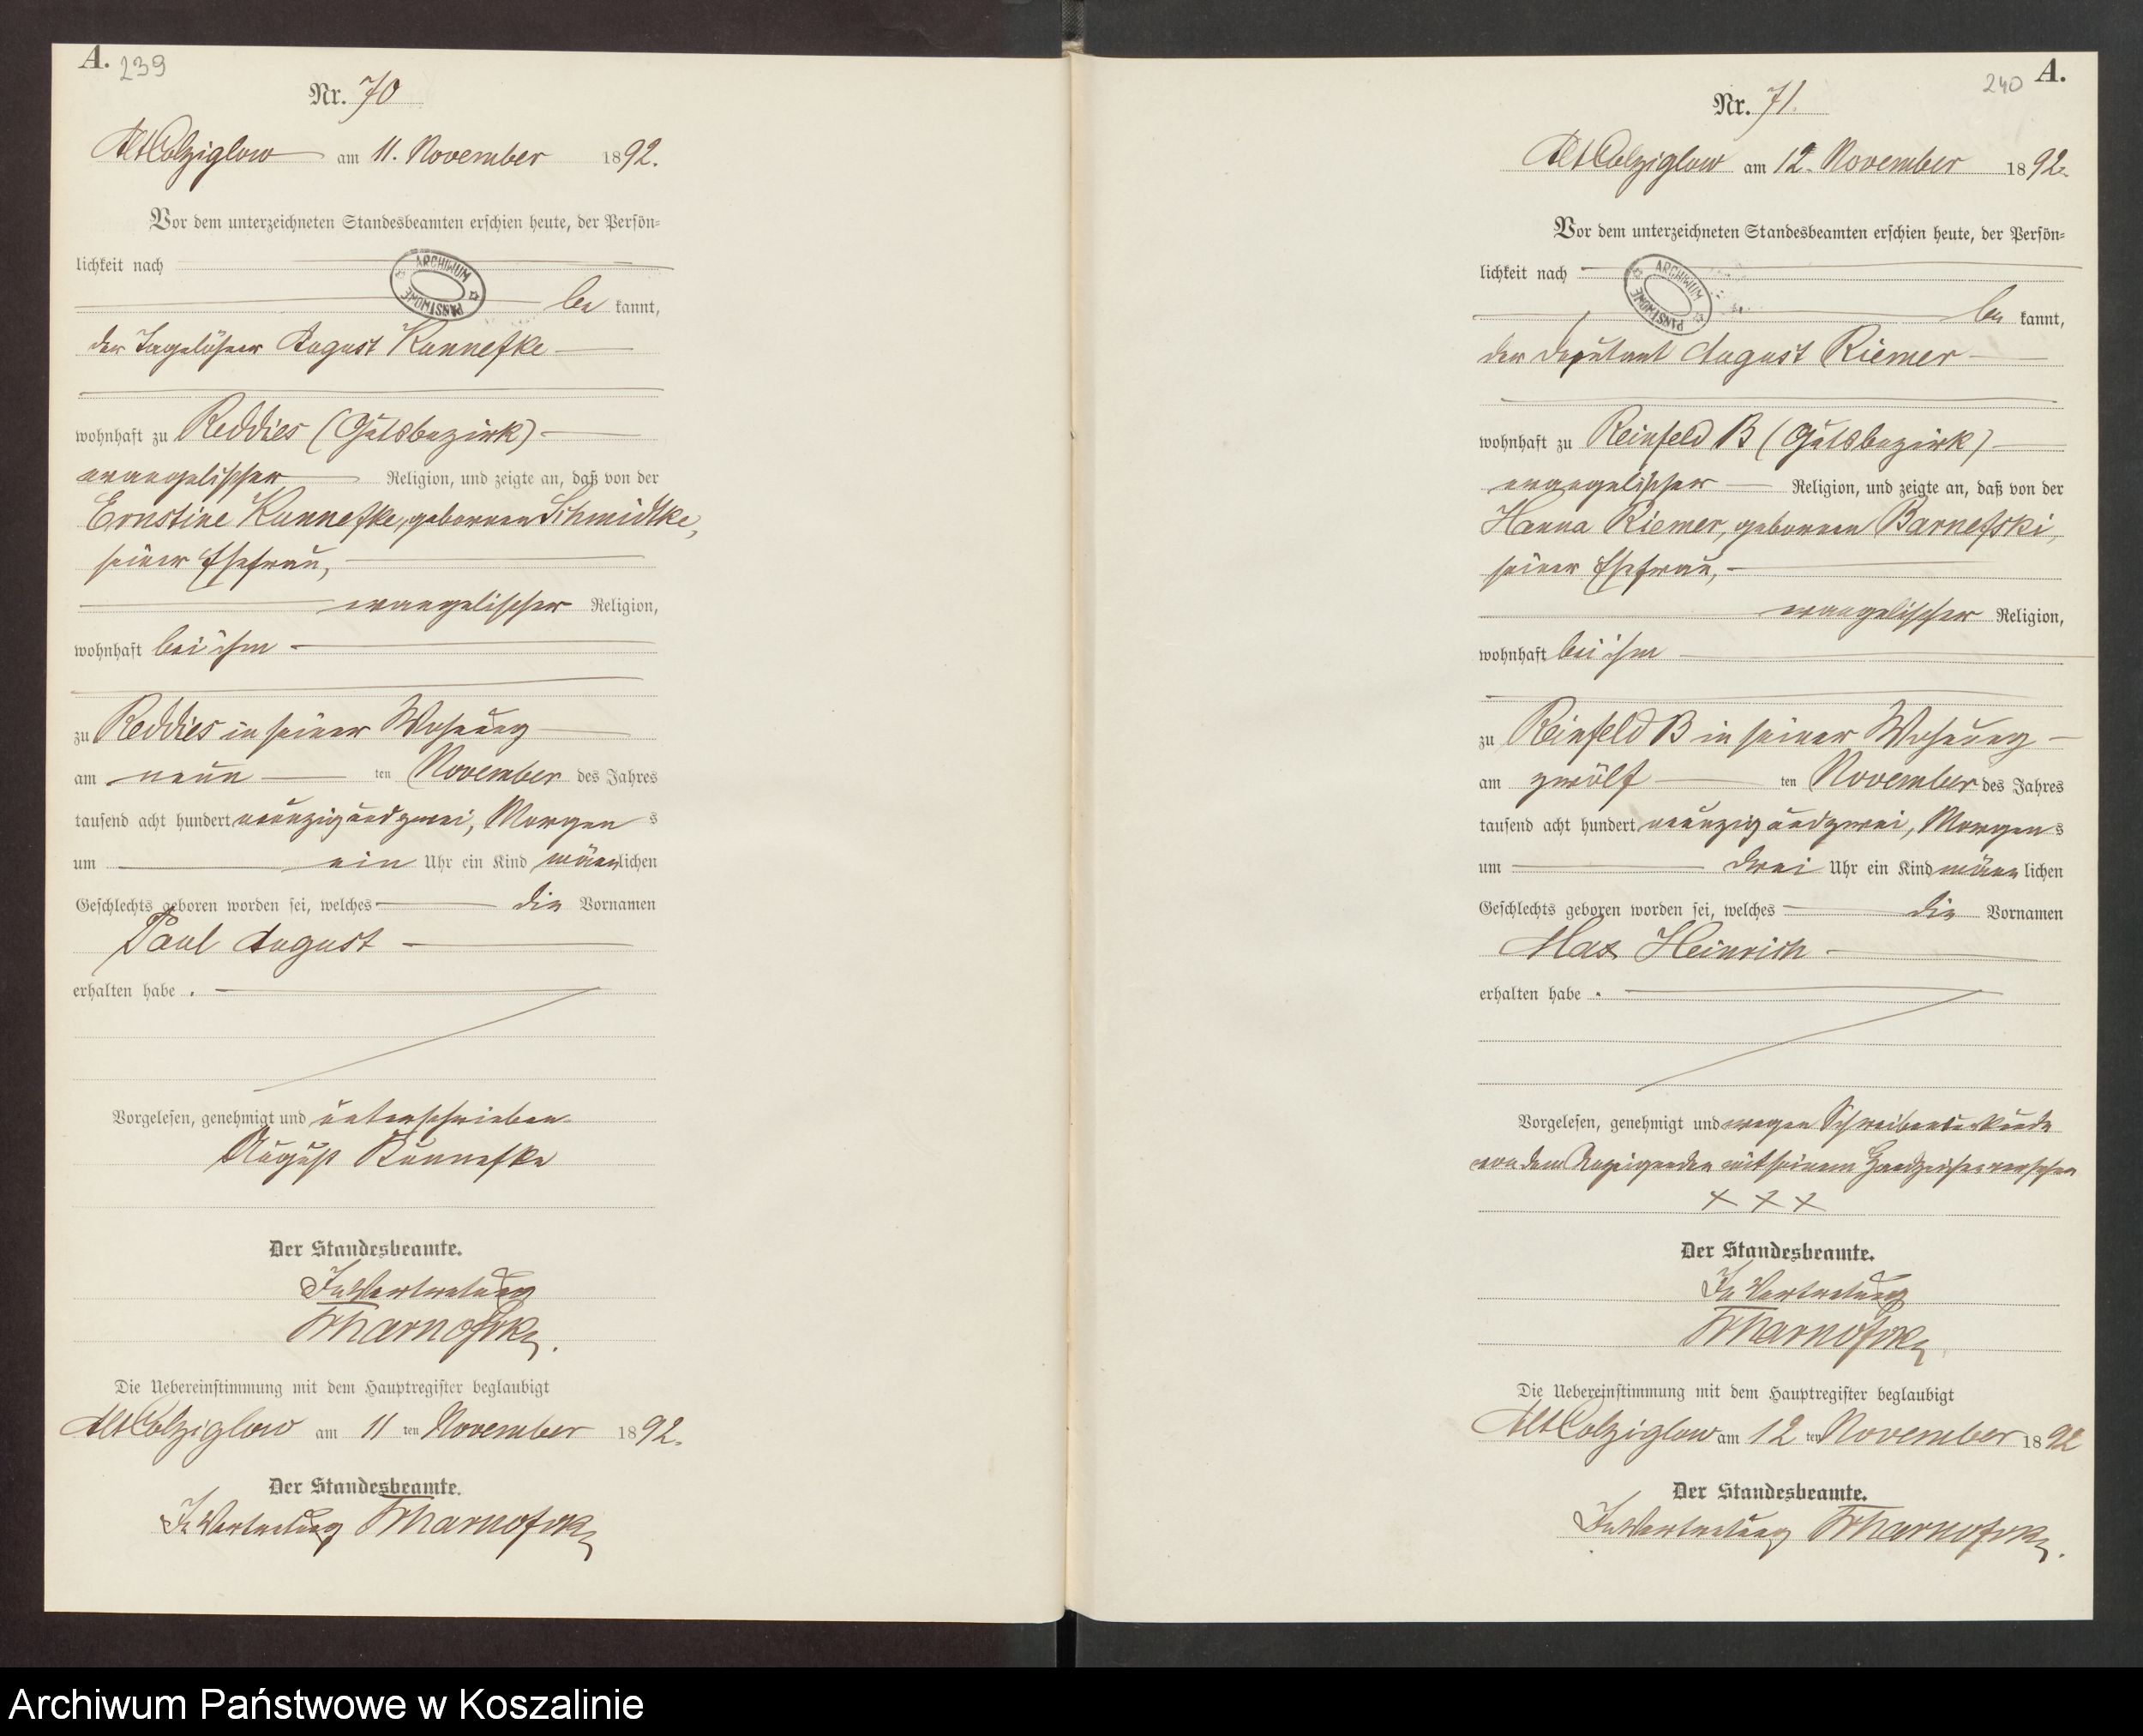 A. 239
Nr. 70
Alt Colziglow am 11. November 1892.
Vor dem unterzeichneten Standesbeamten erschien heute, der Persön=
lichkeit nach
ARCHIWUM PAŃSTWOWE
be kannt,
der Tagelöhner August Kunnefke
wohnhaft zu Reddies (Gutsbezirk)
evangelischer Religion, und zeigte an, daß von der
Ernstine Kunnefke, geborenen Schmidtke,
seiner Ehefrau,
evangelischer Religion,
wohnhaft bei ihm
zu Reddies in seiner Wohnung
am neun ten November des Jahres
tausend acht hundert neunzig und zwei, Morgens
um ein Uhr ein Kind männlichen
Geschlechts geboren worden sei, welches die Vornamen
Paul August
erhalten habe.
Vorgelesen, genehmigt und unterschrieben.
August Kunnefke
Der Standesbeamte.
In Vertretung
Die Uebereinstimmung mit dem Hauptregister beglaubigt
Alt Colziglow am 11 ten November 1892.
Der Standesbeamte.
In Vertretung
240 A.
Nr. 71.
Alt Colziglow am 12. November 1892.
Vor dem unterzeichneten Standesbeamten erschien heute, der Persön=
lichkeit nach
ARCHIWUM PAŃSTWOWE
be kannt,
der Deputant August Riemer
wohnhaft zu Reinfeld B (Gutsbezirk)
evangelischer Religion, und zeigte an, daß von der
Hanna Riemer, geborenen Barnefski,
seiner Ehefrau,
evangelischer Religion,
wohnhaft bei ihm
zu Reinfeld B in seiner Wohnung
am zwölf ten November des Jahres
tausend acht hundert neunzig und zwei, Morgens
um drei Uhr ein Kind männlichen
Geschlechts geboren worden sei, welches die Vornamen
Max Heinrich
erhalten habe.
Vorgelesen, genehmigt und wegen Schreibensunkunde
von dem Anzeigenden mit seinem Handzeichen versehen
XXX
Der Standesbeamte.
In Vertretung
Die Uebereinstimmung mit dem Hauptregister beglaubigt
Alt Colziglow am 12 ten November 1892
Der Standesbeamte.
In Vertretung
Archiwum Państwowe w Koszalinie